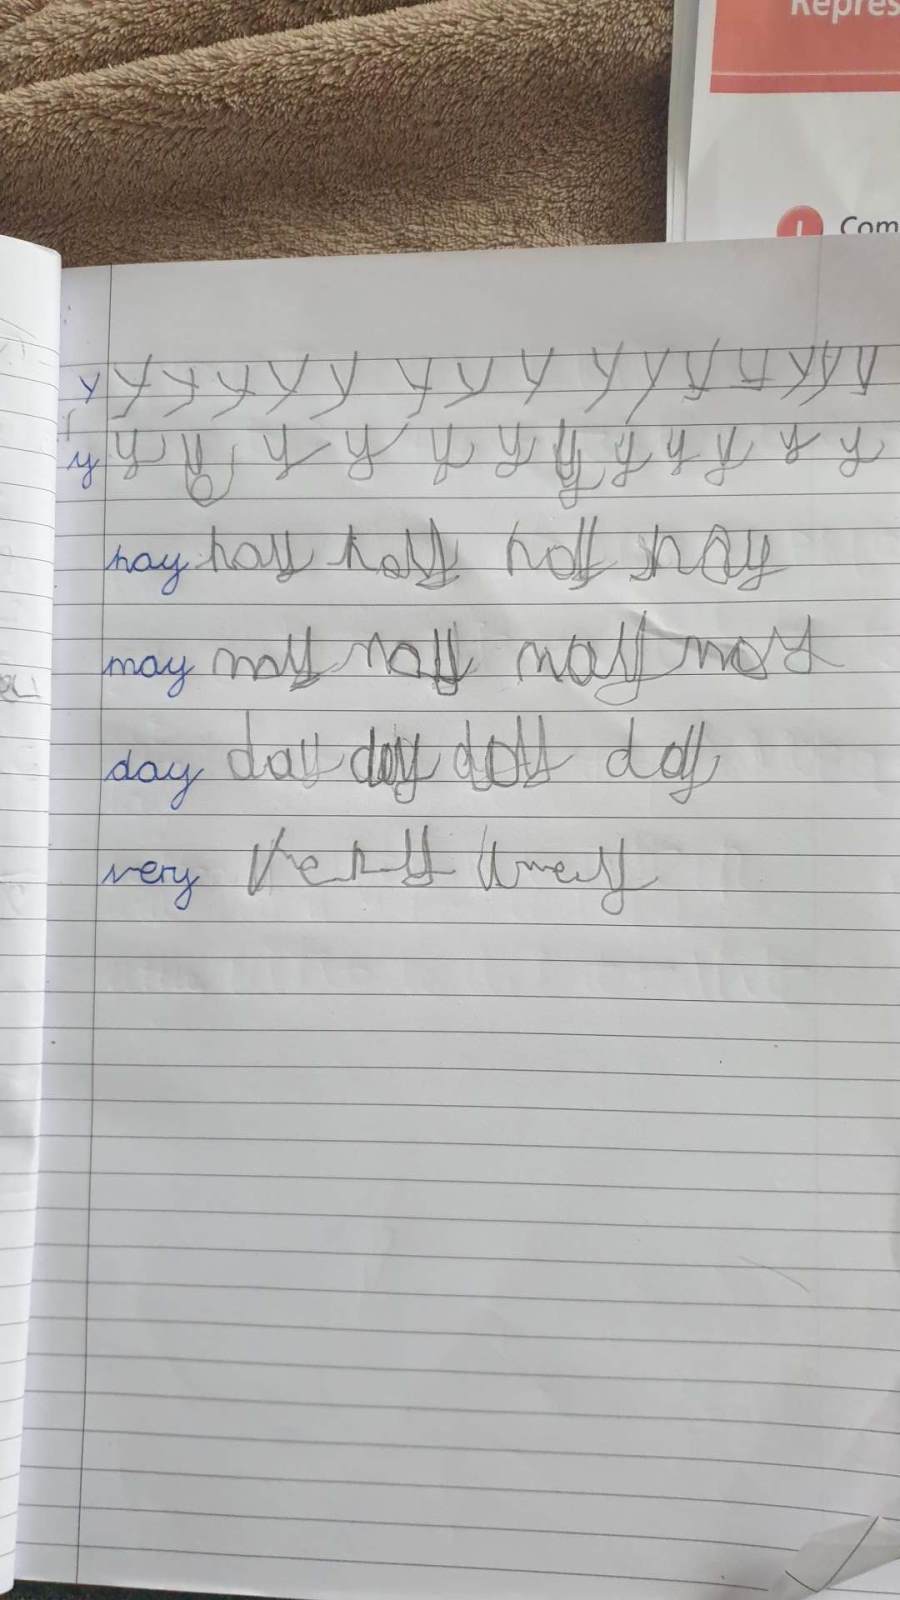 Repres
! Com
y y y y y y y y y y y y y y y y
y y y y y y y y y y y y y
hay hay hay hay hay
may may may may may
day day day day day
very very